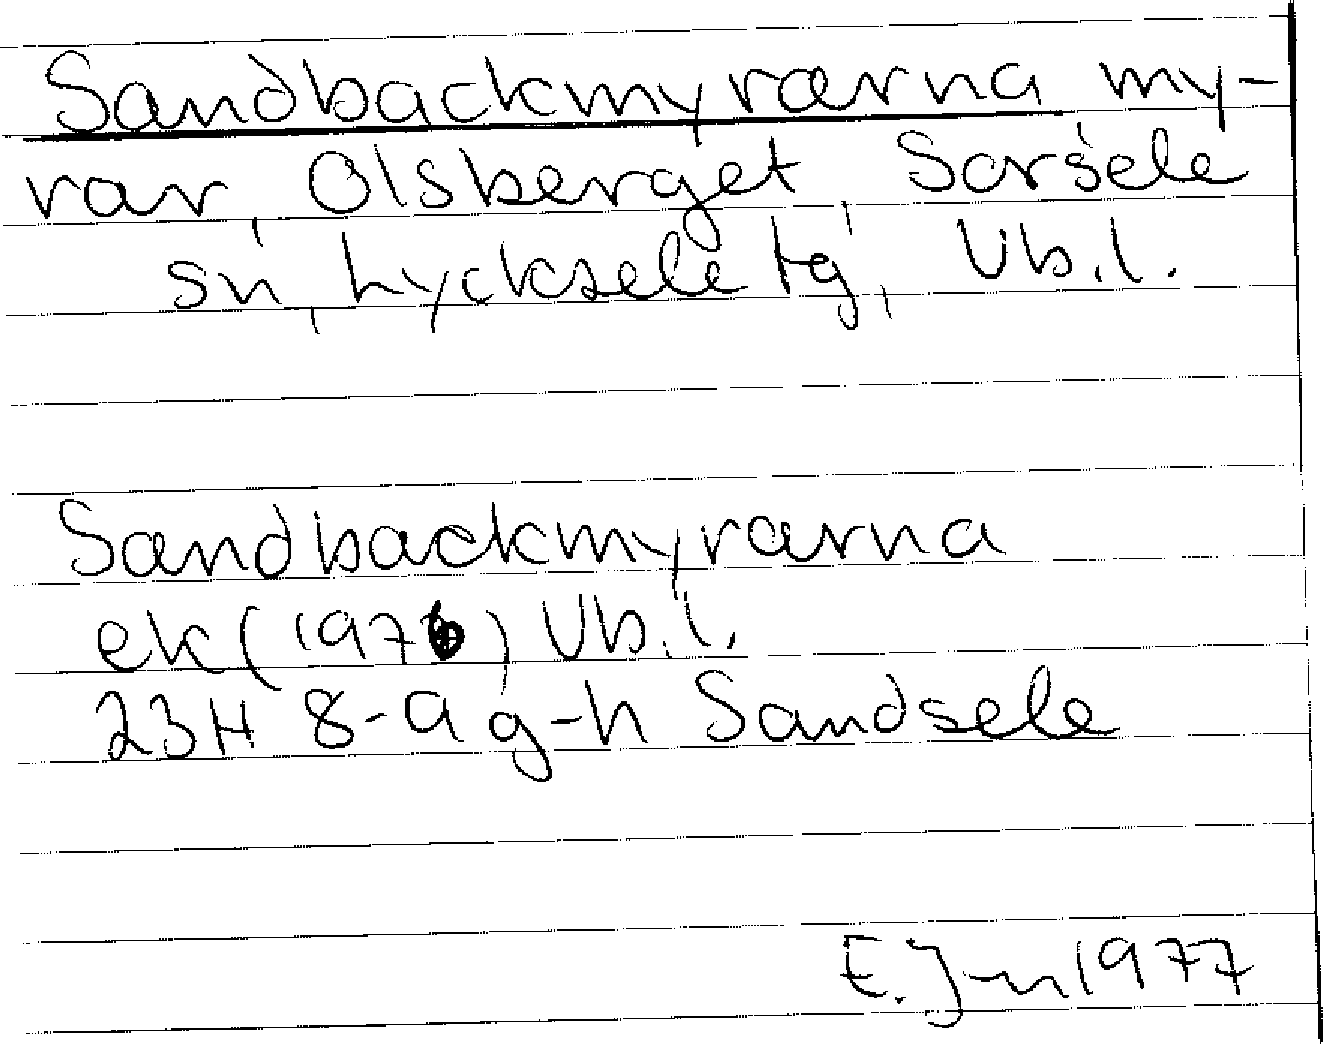 Sandbackmyrarna my-
rar, Olsberget, Sorsele
sn, Lycksele tg, Vb.l.
Sandbackmyrarna
ek (1976) Vb.l.
23H 8-9 g-h Sandsele
E. 1977